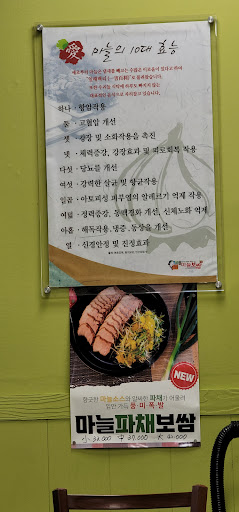 愛 마늘의 10대 효능
하나 · 항암작용
둘 · 고혈압 개선
셋 · 장 및 소화작용을 촉진
넷 · 체력증강, 강장효과 및 피로회복 작용
다섯 · 당뇨를 개선
여섯 · 강력한 살균 및 항균작용
일곱 · 아토피성 피부염의 알레르기 억제 작용
여덟 · 정력증강, 동맥경화 개선, 신체노화 억제
아홉 · 해독작용, 냉증, 동상을 개선
열 · 신경안정 및 진정효과
향긋한 마늘소스와 알싸한 파채가 어울려
NEW
마늘파채보쌈
小 31,000 中 37,000 大 41,000